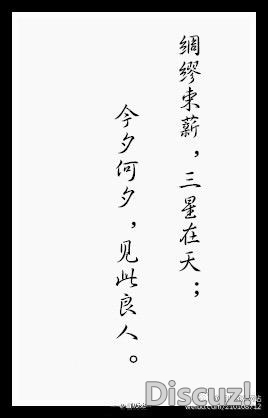 绸缪束薪，三星在天；
今夕何夕，见此良人。
Discuz!